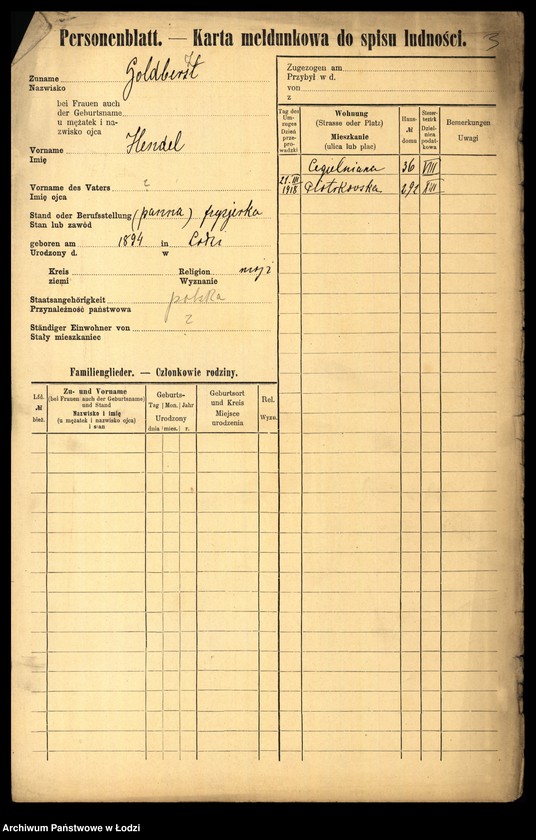 Personenblatt. — Karta meldunkowa do spisu ludności.
3
Zuname Goldberst
Nazwisko
bei Frauen auch
der Geburtsname
u mężatek i na-
zwisko ojca
Vorname Hendel
Imię
Vorname des Vaters ?
Imię ojca
Stand oder Berufsstellung (panna) fryzjerka
Stan lub zawód
geboren am 1894 in Łodzi
Urodzony d. w
Kreis Religion mojż
ziemi Wyznanie
Staatsangehörigkeit polska
Przynależność państwowa
Ständiger Einwohner von ?
Stały mieszkaniec
Familienglieder. — Członkowie rodziny.
Lfd. № bież.
Zu- und Vorname
(bei Frauen auch der Geburtsname)
und Stand
Nazwisko i imię
(u mężatek i nazwisko ojca)
i stan
Geburts-
Tag | Mon. | Jahr
Urodzony
dnia | mies. | r.
Geburtsort
und Kreis
Miejsce
urodzenia
Rel.
Wyzn.
Zugezogen am
Przybył w d.
von
z
Tag des
Um-
zuges
Dzień
prze-
prowadzki
Wohnung
(Strasse oder Platz)
Mieszkanie
(ulica lub plac)
Haus-
№
domu
Steuer-
bezirk
Dziel-
nica
podat-
kowa
Bemerkungen
Uwagi
Cegielniana 36 VIII
21.III
1918 Piotrkowska 292 XIII
Archiwum Państwowe w Łodzi